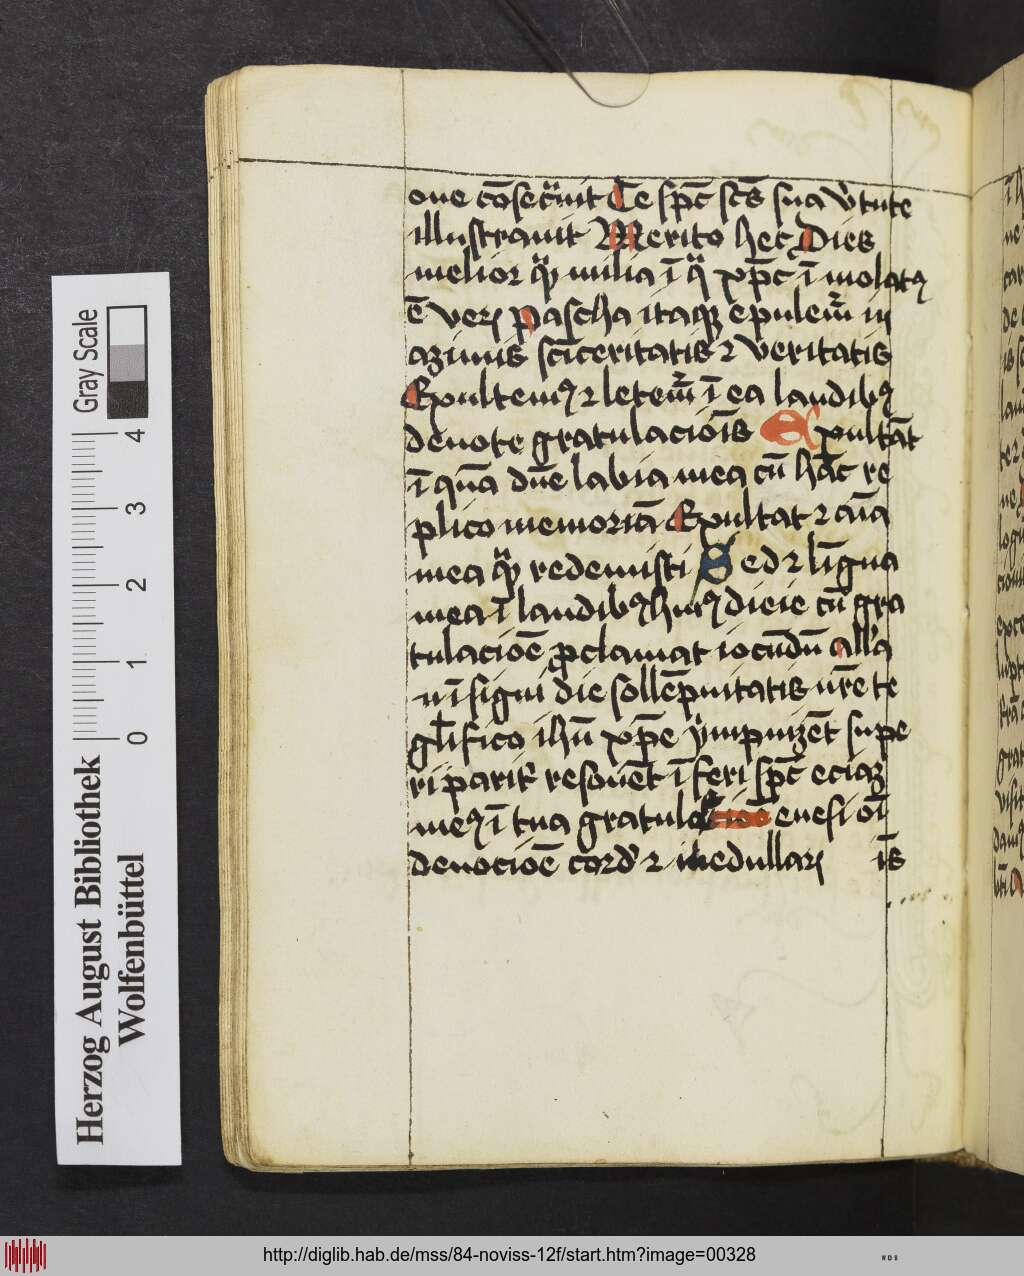 one cōsecͣuit Te sp̄c sc̄s sua v̓tute
illustrauit Merito hec Dies
melior qͣꝫ milia ī qͣ xp̄c īmolatꝰ
ē Verꝫ pascha itaqꝫ epulem̄ᷣ in
azimis sc̄iceritatis ⁊ veritatis
Exultemꝰ ⁊ letem̄ᷣ ī ea laudibꝰ
deuote gratulacio̅is Exultāt
ī qua̅ dn̄e labia mea cū ha̅c re
plico memoria̅ Exultat ⁊ aīa
mea qͣꝫ redemisti Sed ⁊ lingua
mea ī laudibꝰ huiꝰ dieie cū gra
tulacioē ꝓclamat iocūdū all̓a
in īsigni die sollēpnitatis nr̄e te
gl̄ifico ihū xp̄e ympnizēt supe
ri parit̓ resonēt īferi sp̄c eciaꝫ
meꝰ ī tua gratulacioē euesi oī
deuocioē cord̓ ⁊ medullarꝫ īs
Herzog August Bibliothek
Wolfenbüttel
Gray Scale
0 1 2 3 4
http://diglib.hab.de/mss/84-noviss-12f/start.htm?image=00328